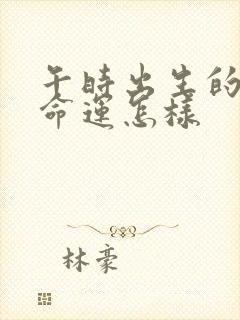 午時出生的
命運怎樣
林豪